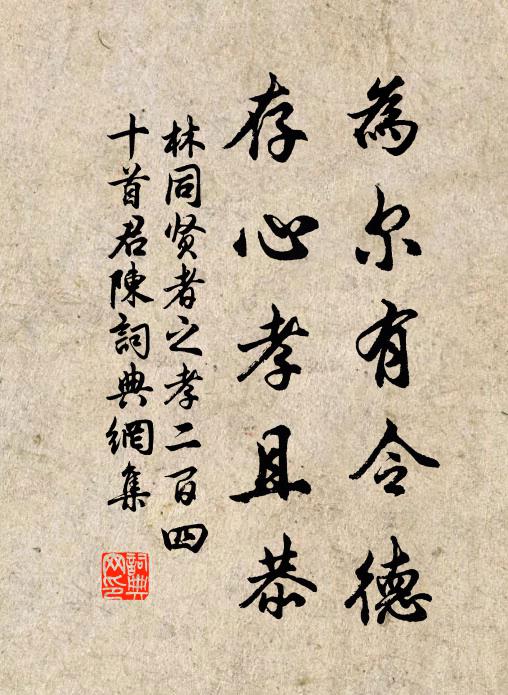 為尔有令德
存心孝且恭
林同贤者之孝二百四
十首君陳詞典網集
詞典
网印